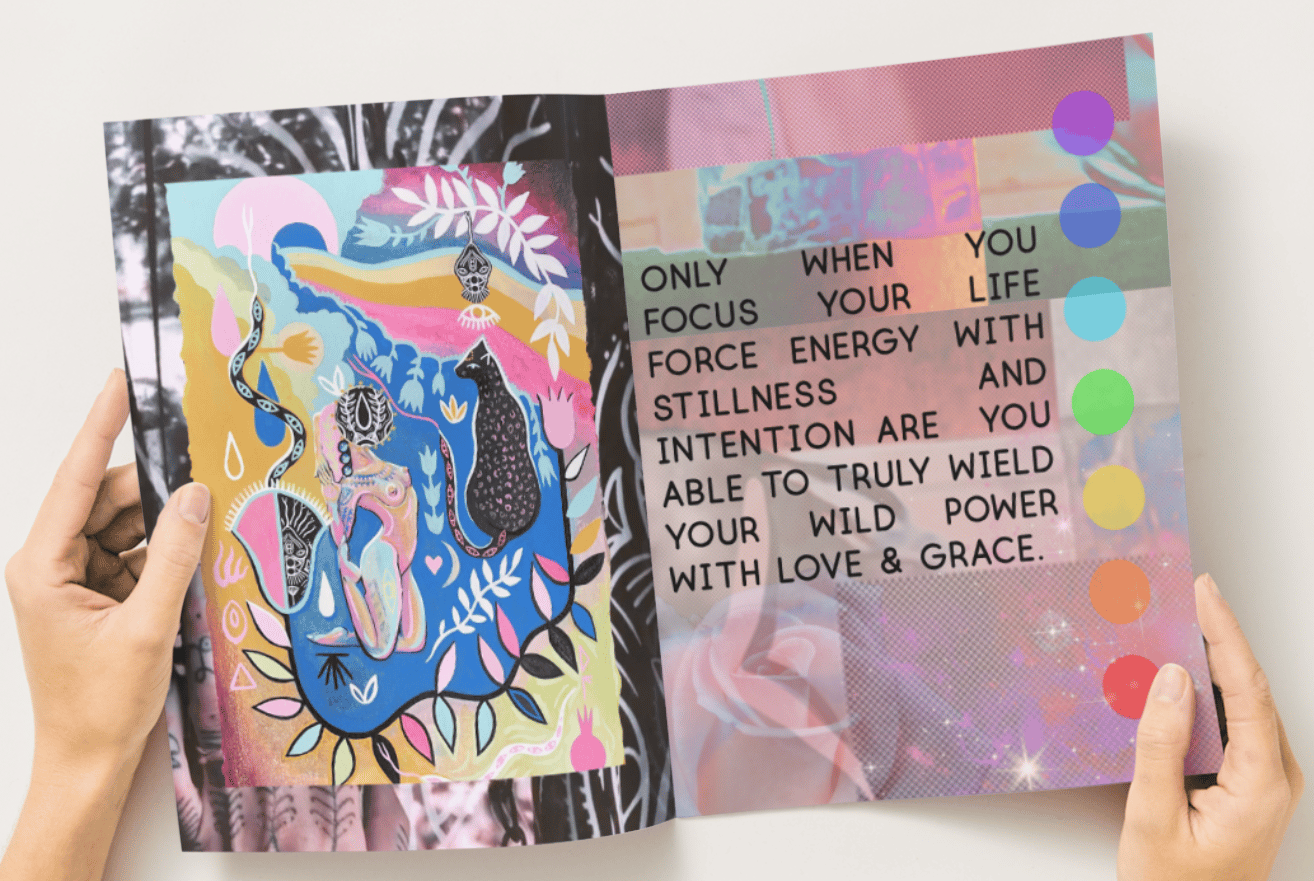 ONLY WHEN YOU
FOCUS YOUR LIFE
FORCE ENERGY WITH
STILLNESS AND
INTENTION ARE YOU
ABLE TO TRULY WIELD
YOUR WILD POWER
WITH LOVE & GRACE.